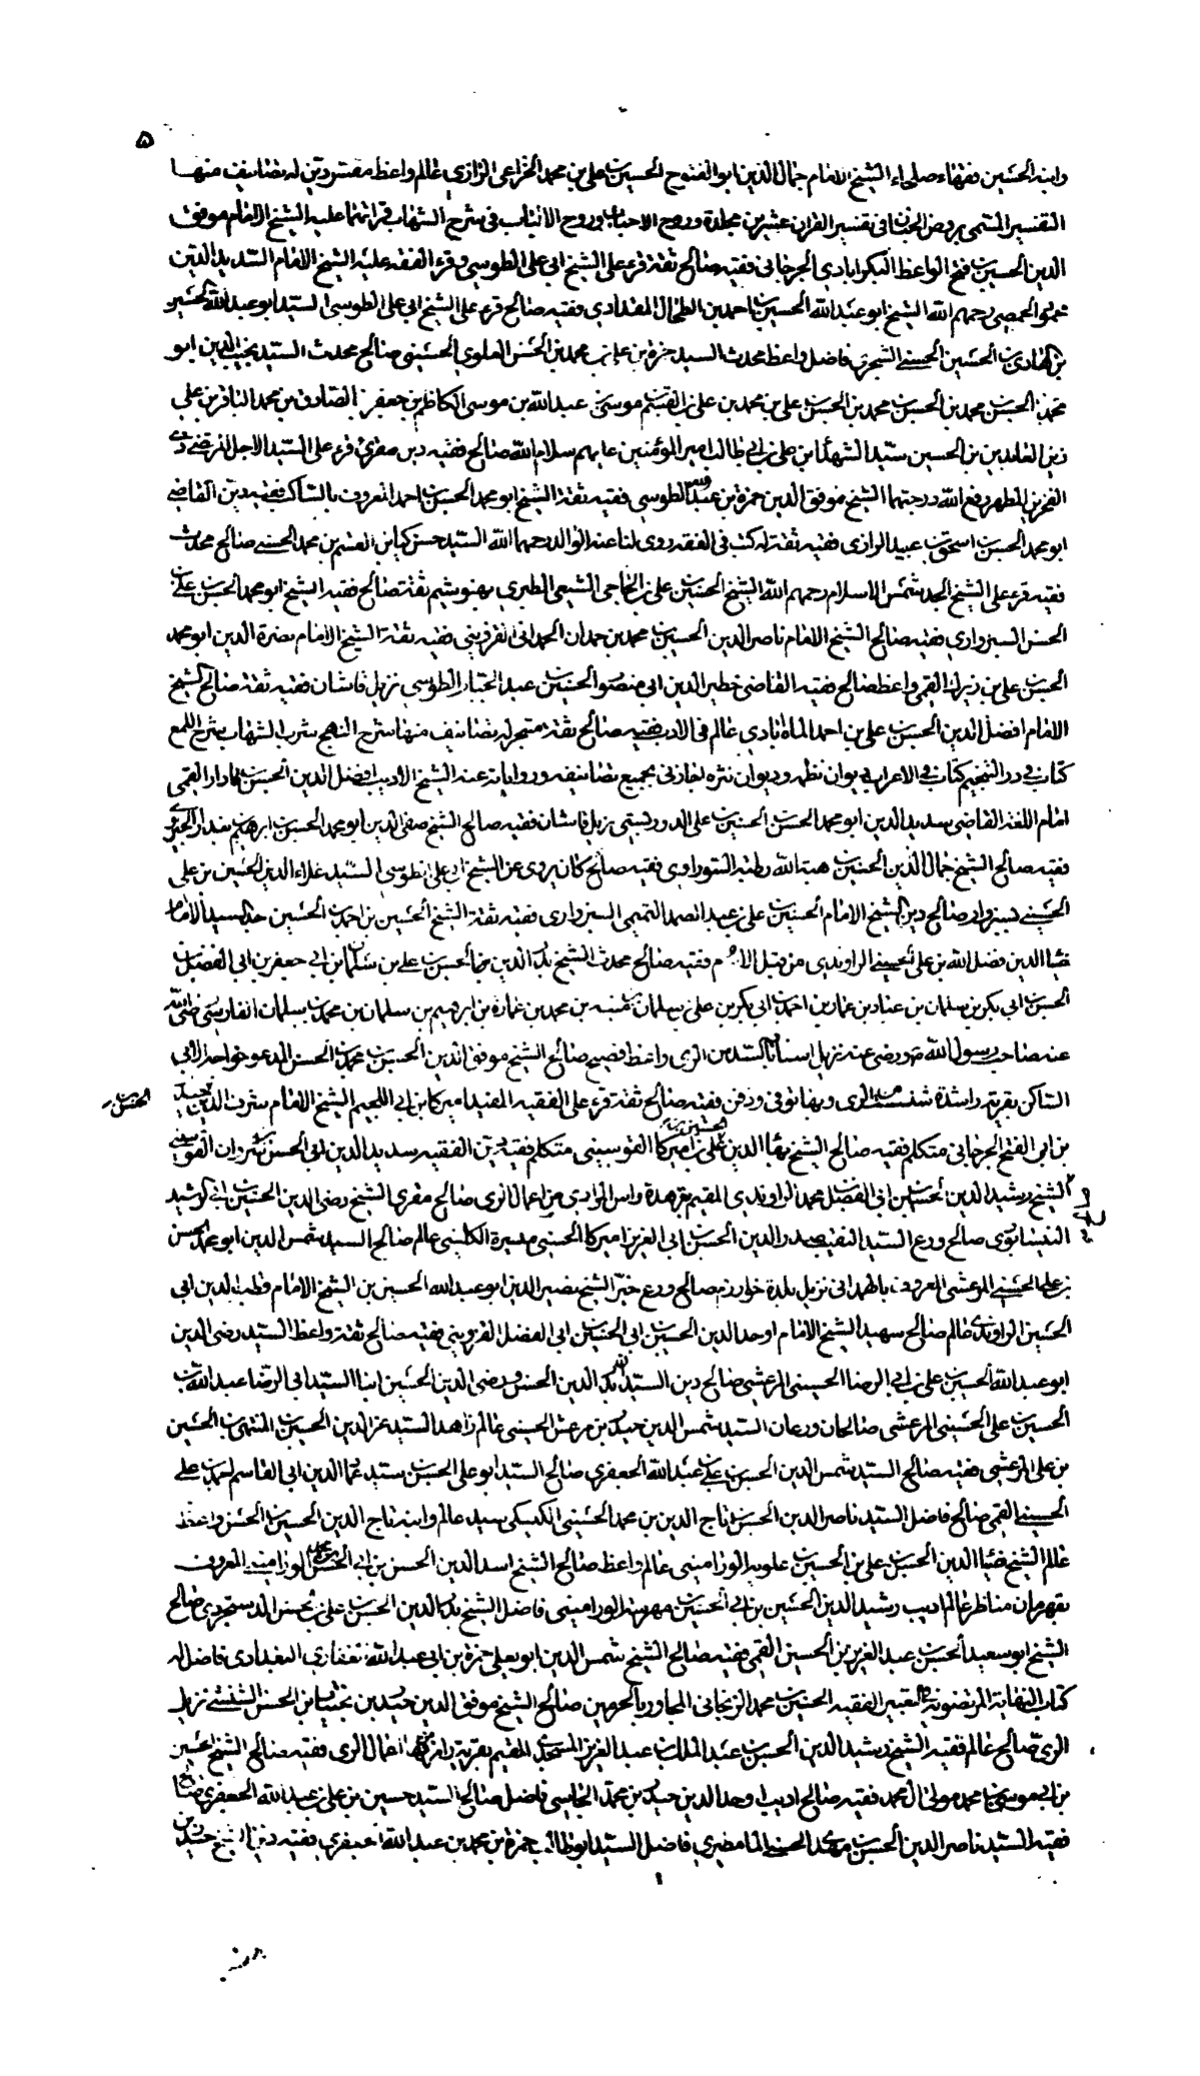 ۵
وابنه الحسين فقهاء صلحاء الشيخ الامام جمال الدين ابو الفتوح الحسين بن علي بن محمد الخزاعي الرازي عالم واعظ مفسر دين له تصانيف منها
التفسير المسمى بروض الجنان في تفسير القران عشرين مجلدة وروح الاحباب وروح الالباب في شرح الشهاب قراتهما عليه الشيخ الامام موفق
الدين الحسين بن فتح الواعظ البكرابادي الجرجاني فقيه صالح ثقة قرء على الشيخ ابي علي الطوسي وقرء الفقه عليه الشيخ الامام السديد الدين
محمود الحمصي رحمهم الله الشيخ ابو عبد الله الحسين بن احمد بن الطحال المقدادي فقيه صالح قرء على الشيخ ابي علي الطوسي السيد ابو عبد الله الحسين
بن الهادي بن الحسين الحسني الشجري فاضل واعظ محدث السيد حمزة بن علي بن محمد بن الحسن العلوي الحسيني صالح محدث السيد نجيب الدين ابو
محمد الحسن بن محمد بن الحسن بن محمد بن الحسن بن علي بن محمد بن علي بن القسم بن موسى بن عبد الله بن موسى الكاظم بن جعفر الصادق بن محمد الباقر بن علي
زين العابدين بن الحسين سيد الشهدا بن علي بن ابي طالب امير المؤمنين عليهم سلام الله صالح فقيه دين مقرئ قرء على السيد الاجل المرتضى ذي
الفخرين المطهر رفع الله درجتهما الشيخ موفق الدين حمزة بن عبد الله الطوسي فقيه ثقة الشيخ ابو محمد الحسن بن احمد المعروف بالساكت فقيه دين القاضي
ابو محمد الحسن بن اسحق بن عبيد الرازي فقيه ثقة له كتب في الفقه روى لنا عنه الوالد رحمهما الله السيد حسن كيا بن القسم بن محمد الحسني صالح محدث
فقيه قرء على الشيخ الجد شمس الاسلام رحمهم الله الشيخ الحسين بن علي بن الحاجي الشيعي الطبري بهنوشيم ثقة صالح فقيه الشيخ ابو محمد الحسن بن علي بن
الحسن السبزواري فقيه صالح الشيخ الامام ناصر الدين الحسين بن محمد بن حمدان الحمداني القزويني فقيه ثقة الشيخ الامام نصرة الدين ابو محمد
الحسن بن علي بن زيرك القمي واعظ صالح فقيه القاضي خطير الدين ابي منصور الحسين بن عبد الجبار الطوسي نزيل قاشان فقيه ثقة صالح الشيخ
الامام افضل الدين الحسن بن علي بن احمد الماهابادي عالم في الادب فقيه صالح ثقة متبحر له تصانيف منها شرح النهج شرح الشهاب شرح اللمع
كتاب في رد التنجيم كتاب في الاعراب ديوان نظمه وديوان نثره اجازني بجميع تصانيفه ورواياته عنه الشيخ الاديب افضل الدين الحسن بن فادار القمي
امام اللغة القاضي سديد الدين ابو محمد الحسن بن الحسين بن علي الدوريستي نزيل قاشان فقيه صالح الشيخ صفي الدين ابو محمد الحسن بن ابراهيم بن بندار الجيروي
فقيه صالح الشيخ جمال الدين الحسين بن هبة الله بن رطبة السوراوي فقيه صالح كان يروي عن الشيخ ابي علي الطوسي السيد علاء الدين الحسين بن علي
الحسيني بسبزوار صالح دين الشيخ الامام الحسين بن علي بن عبد الصمد التميمي السبزواري فقيه ثقة الشيخ الحسين بن احمد بن الحسين جد السيد الامام
ضياء الدين فضل الله بن علي الحسيني الراوندي من قبل الام فقيه صالح محدث الشيخ بدر الدين الحسن بن علي بن سلمان بن ابي جعفر بن ابي الفضل بن
الحسن بن ابي بكر بن سلمان بن عباد بن عمار بن احمد بن ابي بكر بن علي بن سلمان بن منبه بن محمد بن عمارة بن ابراهيم بن سلمان بن محمد بن سلمان الفارسي رضي الله
عنه صاحب رسول الله ص ورضي عنه نزيل اسناباد السد من الري واعظ فصيح صالح الشيخ موفق الدين الحسين بن محمد بن الحسن المدعو خواجه الابي
الساكن بقرية راشدة شنست من الري وبها توفي ودفن فقيه صالح ثقة قرء على الفقيه المفيد اميركا بن ابي اللجيم الشيخ الامام شرف الدين الحسن بن حيدر
بن ابي الفتح الجرجاني متكلم فقيه صالح الشيخ بهاء الدين الحسين بن علي بن اميركا القوسيني متكلم فقيه دين الفقيه سديد الدين ابي الحسن بن انوشروان القوسيني
الشيخ رشيد الدين الحسين بن ابي الفضل بن محمد الراوندي المقيم بقوهدة راس الوادي من اعمال الري صالح مقرئ الشيخ رضي الدين الحسين بن ابي الرشيد
النيسابوري صالح ورع السيد النقيب صدر الدين الحسن بن ابي العزيز اميركا الحسيني مسيرة الكليني عالم صالح السيد شمس الدين ابو محمد الحسن
بن علي الحسيني المرعشي المعروف بالهمداني نزيل بلدة خوارزم صالح ورع خير الشيخ نصير الدين ابو عبد الله الحسين بن الشيخ الامام قطب الدين ابي
الحسين الراوندي عالم صالح شهيد الشيخ الامام اوحد الدين الحسين بن ابي الحسين بن ابي الفضل القزويني فقيه صالح ثقة واعظ السيد رضي الدين
ابو عبد الله الحسين بن علي بن ابي الرضا الحسيني المرعشي صالح دين السيد بدر الدين الحسن ورضي الدين الحسين ابنا السيد ابي الرضا عبد الله بن
الحسين بن علي الحسيني المرعشي صالحان ورعان السيد شمس الدين حيدر بن مرعش الحسيني عالم زاهد السيد عز الدين الحسين بن المنتهى بن الحسين
بن علي المرعشي فقيه صالح السيد شمس الدين الحسن بن علي بن عبد الله الجعفري صالح السيد ابو علي الحسن بن سيد عماد الدين ابي القاسم احمد بن علي
الحسيني القمي صالح فاضل السيد ناصر الدين الحسن بن تاج الدين بن محمد الحسيني الكيسكي سيد عالم وابنه تاج الدين الحسين بن الحسن واعظ
عالم الشيخ ضياء الدين الحسن بن علي بن الحسين بن علويه الوراميني عالم واعظ صالح الشيخ اسد الدين الحسن بن ابي الحسن بن محمد الوراميني المعروف
بقهرمان مناظر عالم اديب رشيد الدين الحسين بن ابي الحسين بن مهربه الوراميني فاضل الشيخ بدر الدين الحسن بن علي بن الحسن الدستجردي صالح
الشيخ ابو سعيد الحسن بن عبد العزيز بن الحسين القمي فقيه صالح الشيخ شمس الدين ابو يعلى حمزة بن ابي عبد الله الغفاري البغدادي فاضل له
كتاب النهاية المرتضوية في التعبير الفقيه الحسين بن محمد الزنجاني المجاور بالحرمين صالح الشيخ موفق الدين حيدر بن بختيار بن الحسن الشنشي نزيل
الري صالح عالم فقيه الشيخ رشيد الدين الحسن بن عبد الملك بن عبد العزيز المسجدي المقيم بقرية رامرين من اعمال الري فقيه صالح الشيخ الحسين
بن ابي موسى بن محمد مولى ال محمد فقيه صالح اديب اوحد الدين حيدر بن محمد الخاسي فاضل صالح السيد حسين بن علي بن عبد الله الجعفري صالح
فقيه السيد ناصر الدين الحسن بن مهدي الحسني المامطيري فاضل السيد ابو طالب حمزة بن محمد بن عبد الله الجعفري فقيه دين الشيخ حيدر بن